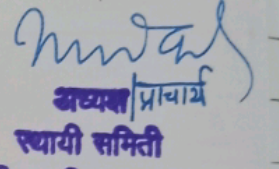 अध्यक्ष|प्राचार्य
स्थायी समिती